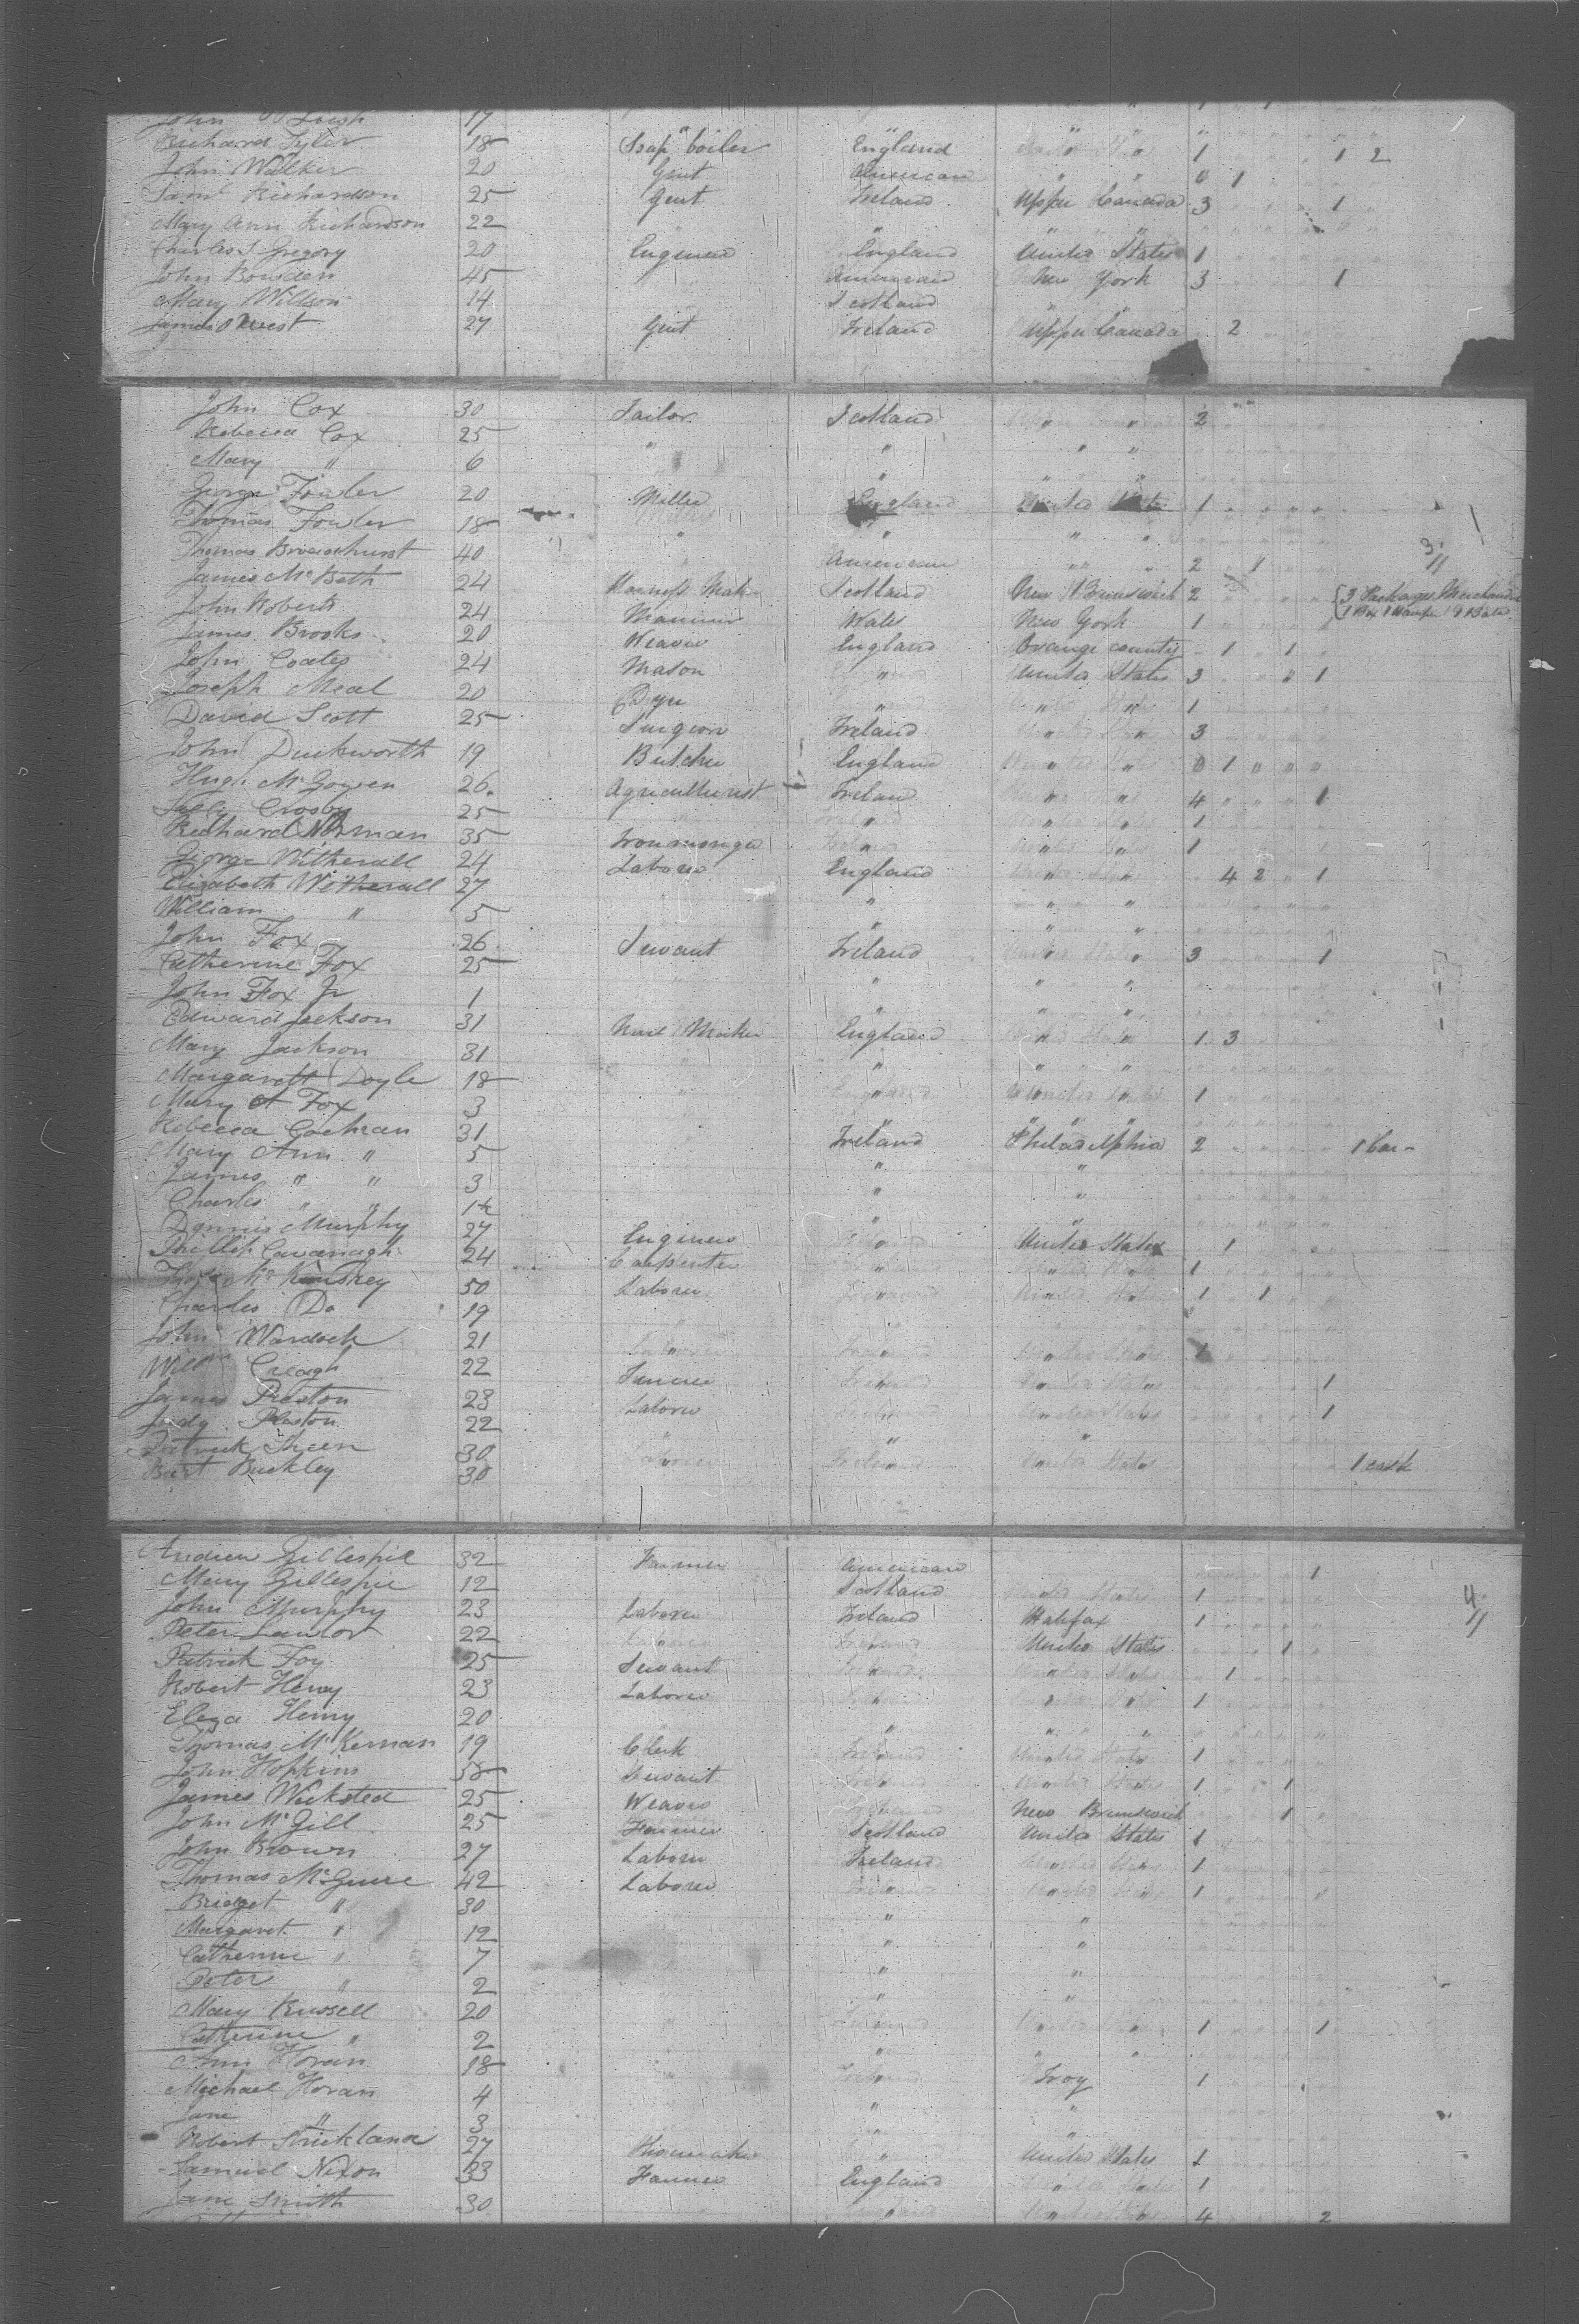 John 17
Richard Tyler 18 Soap boiler England " " 1 1 2
John Walker 20 Gent American " " 0 1
Saml Richardson 25 Gent Ireland Upper Canada 3 1
Mary Ann Richardson 22 " "
Charles S Gregory 20 Engineer England United States 1
John Bowden 45 American New York 3 1
Mary Willson 14 Scotland "
James 27 Gent Ireland Upper Canada 2
John Cox 30 Tailor Scotland " " 2
Rebecca Cox 25 " " " "
Mary " 6 " " "
George Fowler 20 Miller England United States 1
Thomas Fowler 18 " " "
Thomas Broadhurst 40 American " " 2 1 3
James McBeth 24 Harness Maker Scotland New Brunswick 2 3 Packages Merchandise
John Roberts 24 Mariner Wales New York 1 1 Box 1 Hamper 1 Bale
James Brooks 20 Weaver England Orange county 1 1
John Coates 24 Mason " United States 3 " 1
Joseph Meal 20 Dyer " " " 1
David Scott 25 Surgeon Ireland " " 3
John Duckworth 19 Butcher England " " 0 1 " " "
Hugh McGowen 26 Agriculturist Ireland " " 4 " " " 1
Sally Crosby 25 " " " 1
Richard Norman 35 Ironmonger " " " 1
George Witherall 24 Laborer England " " 4 2 " 1
Elizabeth Witherall 27 " " "
William " 5 " " "
John Fox 26 Servant Ireland United States 3 1
Catherine Fox 25 " " "
John Fox Jr 1 " " "
Edward Jackson 31 Nail Maker England " " 1 3
Mary Jackson 31 " " " "
Margarett Doyle 18 " England United States 1
Mary A Fox 3 " " "
Rebecca Cochran 31 " Ireland Philadelphia 2
Mary Ann " 5 " "
James " " 3 " "
Charles " " 1½ " "
Dennis Murphy 27 Engineer United States 1
Phillip Cavanagh 24 Carpenter " " 1
Thos McKinskey 50 Laborer " " 1 1
Charles Do 19
John Wardock 21 Laborer " " 1
Willm Creagh 22 Farmer Ireland United States 1
James Preston 23 Laborer Ireland United States 1
Judy Preston 22 " " "
Patrick Sheen 30 Laborer Ireland United States
Burt Buckley 30 1 cask
Andrew Gillespie 32 Farmer American 1
Mary Gillespie 12 Scotland United States 1 4
John Murphy 23 Laborer Ireland Halifax 1
Peter Lawlor 22 Laborer Ireland United States 1
Patrick Foy 25 Servant Ireland United States 1
Robert Henry 23 Laborer " " " 1
Eleza Henry 20 " " "
Thomas McKernan 19 Clerk Ireland United States 1
John Hopkins 38 Servant Ireland United States 1 1
James Wicksted 25 Weaver New Brunswick 1
John McGill 25 Farmer Scotland United States 1
John Brown 27 Laborer Ireland United States 1
Thomas McGuire 42 Laborer Ireland United States 1
Bridget " 30 " "
Margaret " 12 " "
Catherine " 7 " "
Peter " 2 " "
Mary Russell 20 Ireland United States 1 1
Catherine " 2 " " "
Ann Horan 18 Ireland Troy 1
Michael Horan 4 " "
Jane " 3 " "
Robert Strickland 27 " United States 1
Samuel Nixon 33 Farmer England United States 1
Jane Smith 30 England United States 4 2